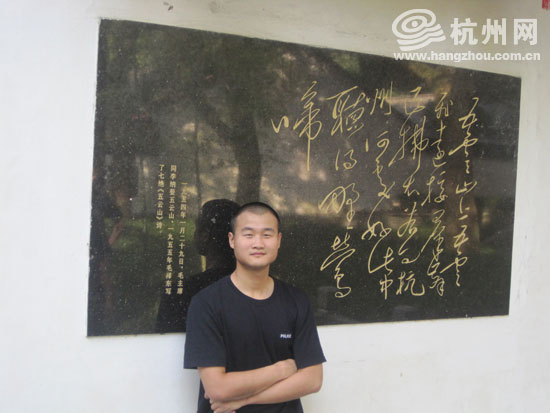 杭州网
www.hangzhou.com.cn
五雲山上五雲
飛遠接羣峰
近拂堤若问杭
州何处好此中
聽得野鶯
啼
一九五四年一月二十九日，毛主席
同李纳登五云山。一九五五年毛泽东写
了七绝《五云山》诗。
POLICE